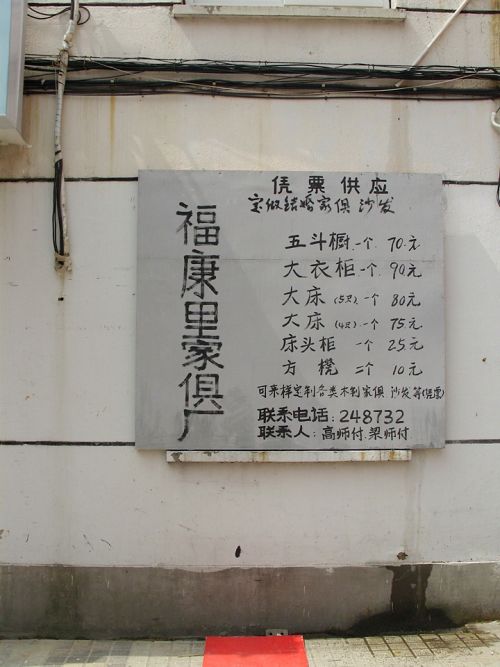 福康里家俱厂
凭票供应
定做结婚家俱 沙发
五斗橱 一个 70元
大衣柜 一个 90元
大床 (5尺) 一个 80元
大床 (4尺) 一个 75元
床头柜 一个 25元
方凳 二个 10元
可来样定制各类木制家俱 沙发等(凭票)
联系电话: 248732
联系人: 高师付.梁师付